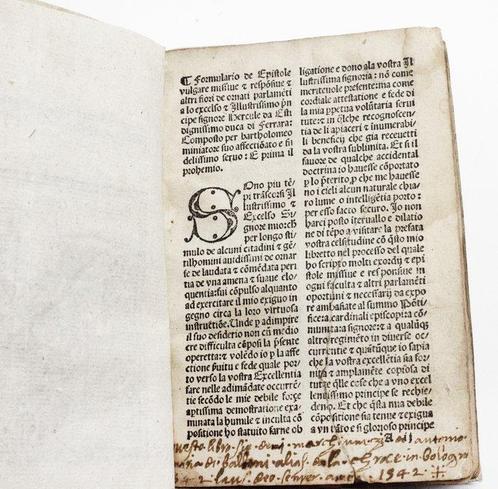 ¶ Formulario de Epistole
vulgare missiue ⁊ respõsiue ⁊
altri fiori de ornati parlamẽti
a lo excelso ⁊ Illustrissimo prĩ
cipe signore Hercule da Esti
dignissimo duca di Ferrara:
Composto per bartholomeo
miniator suo affectionato ⁊ fi
delissimo seruo: E prima il
prohemio.
SOno piu tẽ
pi trascorsi Il
lustrissimo ⁊
Excelso Si
gnore
per longo sti
mulo de alcuni citadini ⁊ gẽ
tilhomini auidissimi de ornar
se de laudata ⁊ cõmẽdata peri
tia de vna amena ⁊ suaue elo
quentia: fui cõpulso alquanto
ad exercitare il mio exiguo in
gegno circa la loro virtuosa
instructiõe. Unde ꝑ adimpire
il suo desiderio non cũ medio
cre difficulta cõposi la p̃sente
operetta: ⁊ volẽdo io ꝑ la affe
ctione ⁊ fede qual porto
verso la vostra Excellentia
fare nelle adimãdate occurrẽti
e secõdo le mie debile forze
aptissima demostratione exa
minata la humile ⁊ inculta cõ
positione ho statuito farne ob
ligatione e dono ala vostra Il
lustrissima signoria: nõ come
meriteuole presente: ma come
cordiale attestatione e fede di
la mia ꝑpetua volũtaria serui
tute: ⁊ in q̃lche recognoscen
tia de li apiaceri ⁊ inumerabi
li beneficij che gia receuetti
da la vostra sublimita. Et si il
fauore de qualche accidental
doctrina io hauesse cõportato
ꝑ lo p̃terito, ꝑ che me hauesse
no i cieli alcun naturale chia
ro lume o intellecto porto: e
per esso facto securo. Jo non
harei posto iteruallo e dilatio
ne di tẽpo a visitare la prefata
vostra celsitudine cõ q̃sto mio
libretto nel processo del quale
ho scripto molti exordij ⁊ epi
stole missiue e responsiue in
ogni faculta ⁊ altri parlamẽti
oportuni ⁊ necessarij da expo
rere ambasiate al summo Põti
fice: a cardinali episcopi ⁊ cõ
munita: signore: ⁊ a qualũq;
altro regimẽto in diuerse oc
currentie ⁊ quãtũque io sapia
che la vostra excellẽtia sia for
nita ⁊ amplamẽte copiosa di
tutte q̃lle cose che a vno excel
lentissimo signore se rechiede
Et chio q̃sta mia debile
cõpositione sia tenue ⁊ exigua
a vn tãto e si glorioso principe
A ij
questo libro sie de mi marchiun antonio
maria di balloni alias dala chroce in bologna
1542 laus deo semper amen 1542